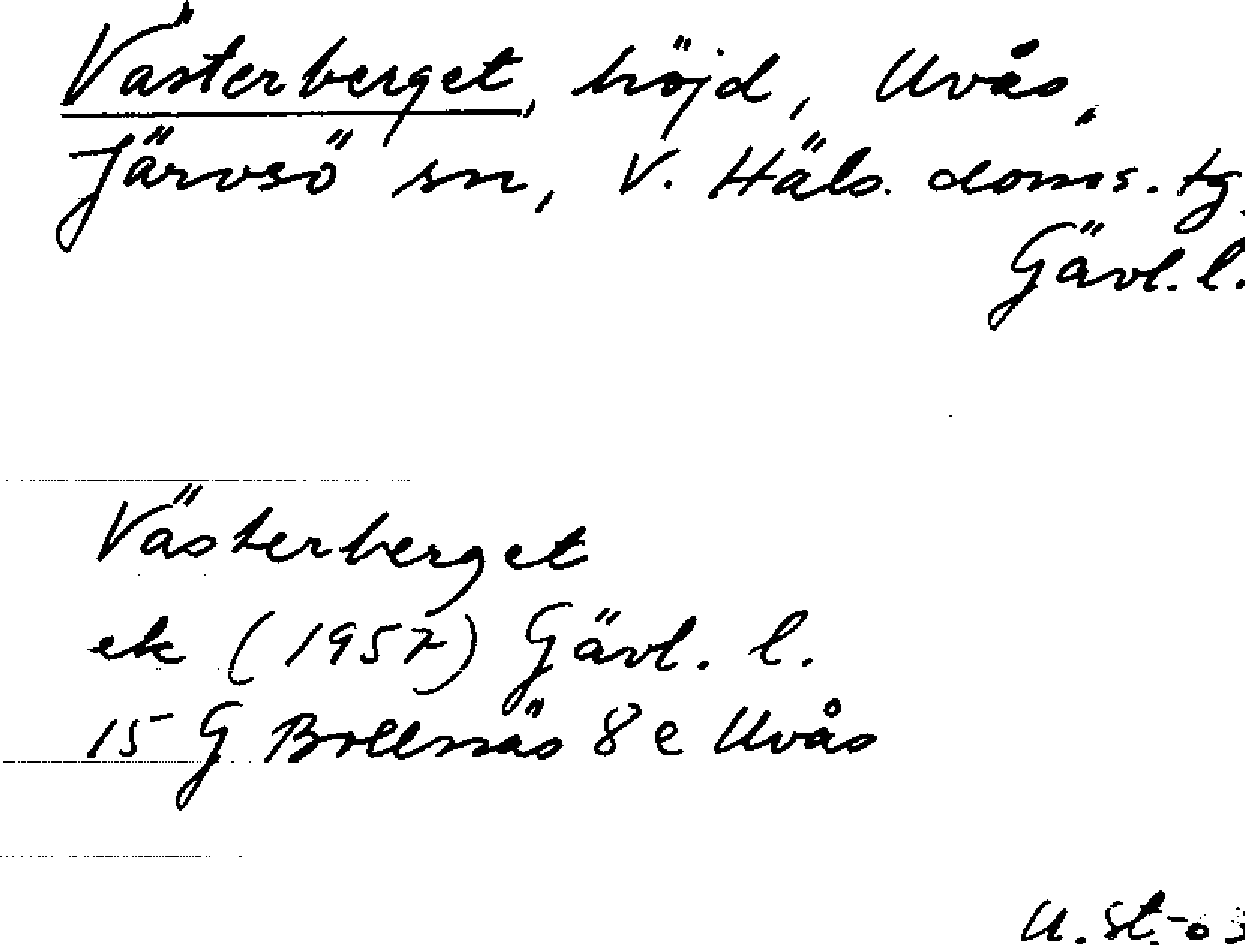 Västerberget, höjd, Uvås,
Järvsö sn, V. Häls. doms. tg
Gävl. l.
Västerberget
ek (1957) Gävl. l.
15 G Bollnäs 8 e Uvås
U. St. -03